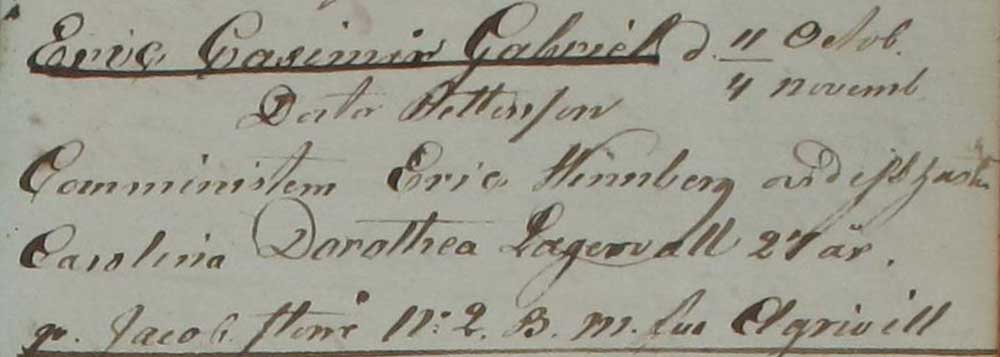 Eric Casimir Gabriel d. 11 Octob.
4 novemb
Pettersson
Comministern Eric Winnberg och dess hustru
Carolina Dorothea Lagervall 27 år.
Jacob N: 2. B. M.